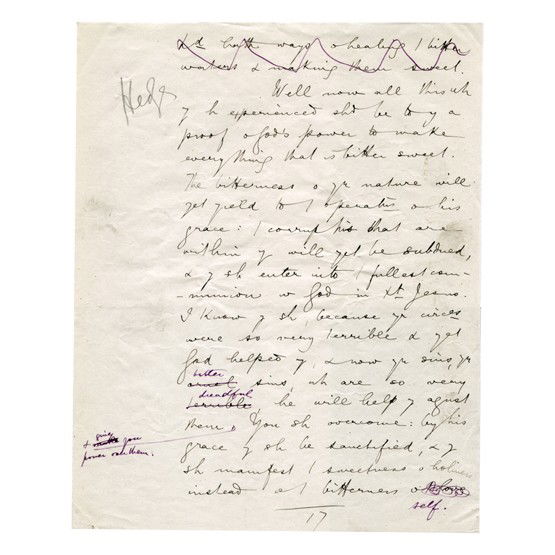 Ld hath ways o healing / bitter
waters & making them sweet.
Hedge
Well now all this wh
y h experienced shd be to y a
proof o God's power to make
everything that is bitter sweet.
The bitterness o yr nature will
yet yield to / operatn o his
grace: / corruptns that are
within y will yet be subdued,
& y sh enter into / fullest com-
-munion w God in Xt Jesus.
I know y sh, because yr circes
were so very terrible & yet
God helped y, & now yr sins, yr
bitter
cruel sins, wh are so very
dreadful
terrible he will help y agnst
them, You sh overcome: by his
& give you
power over them.
grace y sh be sanctified, & y
sh manifest / sweetness o holiness
instead o / bitterness o
self.
17